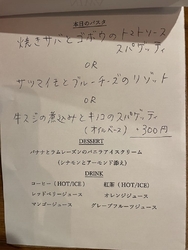 本日のパスタ
焼きサバとゴボウのトマトソース
スパゲッティ
OR
サツマイモとブルーチーズのリゾット
OR
牛スジの煮込みとキノコのスパゲッティ
(オイルベース) +300円
DESSERT
バナナとラムレーズンのバニラアイスクリーム
(シナモンとアーモンド添え)
DRINK
コーヒー (HOT/ICE)
紅茶 (HOT/ICE)
レッドベリージュース
オレンジジュース
マンゴージュース
グレープフルーツジュース